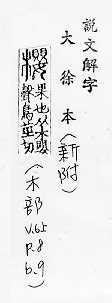 説文解字
大徐本(新附)
櫻果也从木嬰
聲烏莖切
(木部
V.6上
P.8
b.9)